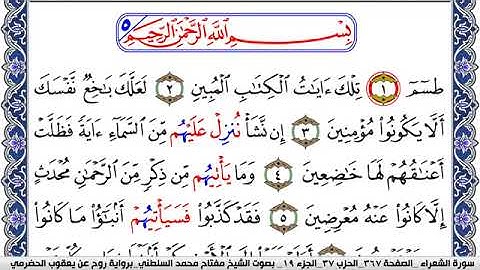 بِسْمِ اللَّهِ الرَّحْمَٰنِ الرَّحِيمِ ٥
طسٓمٓ ١ تِلْكَ ءَايَاتُ الْكِتَابِ الْمُبِينِ ٢ لَعَلَّكَ بَاخِعٌ نَّفْسَكَ
أَلَّا يَكُونُوا۟ مُؤْمِنِينَ ٣ إِن نَّشَأْ نُنزِلْ عَلَيْهُم مِّنَ السَّمَآءِ ءَايَةً فَظَلَّتْ
أَعْنَاقُهُمْ لَهَا خَاضِعِينَ ٤ وَمَا يَأْتِيهُم مِّن ذِكْرٍ مِّنَ الرَّحْمَٰنِ مُحْدَثٍ
إِلَّا كَانُوا۟ عَنْهُ مُعْرِضِينَ ٥ فَقَدْ كَذَّبُوا۟ فَسَيَأْتِيهُمْ أَنۢبَٰٓؤُا۟ مَا كَانُوا۟
سورة الشعراء _الصفحة ٣٦٧_ الحزب ٣٧_ الجزء ١٩ _ بصوت الشيخ مفتاح محمد السلطني_ برواية روح عن يعقوب الحضرمي